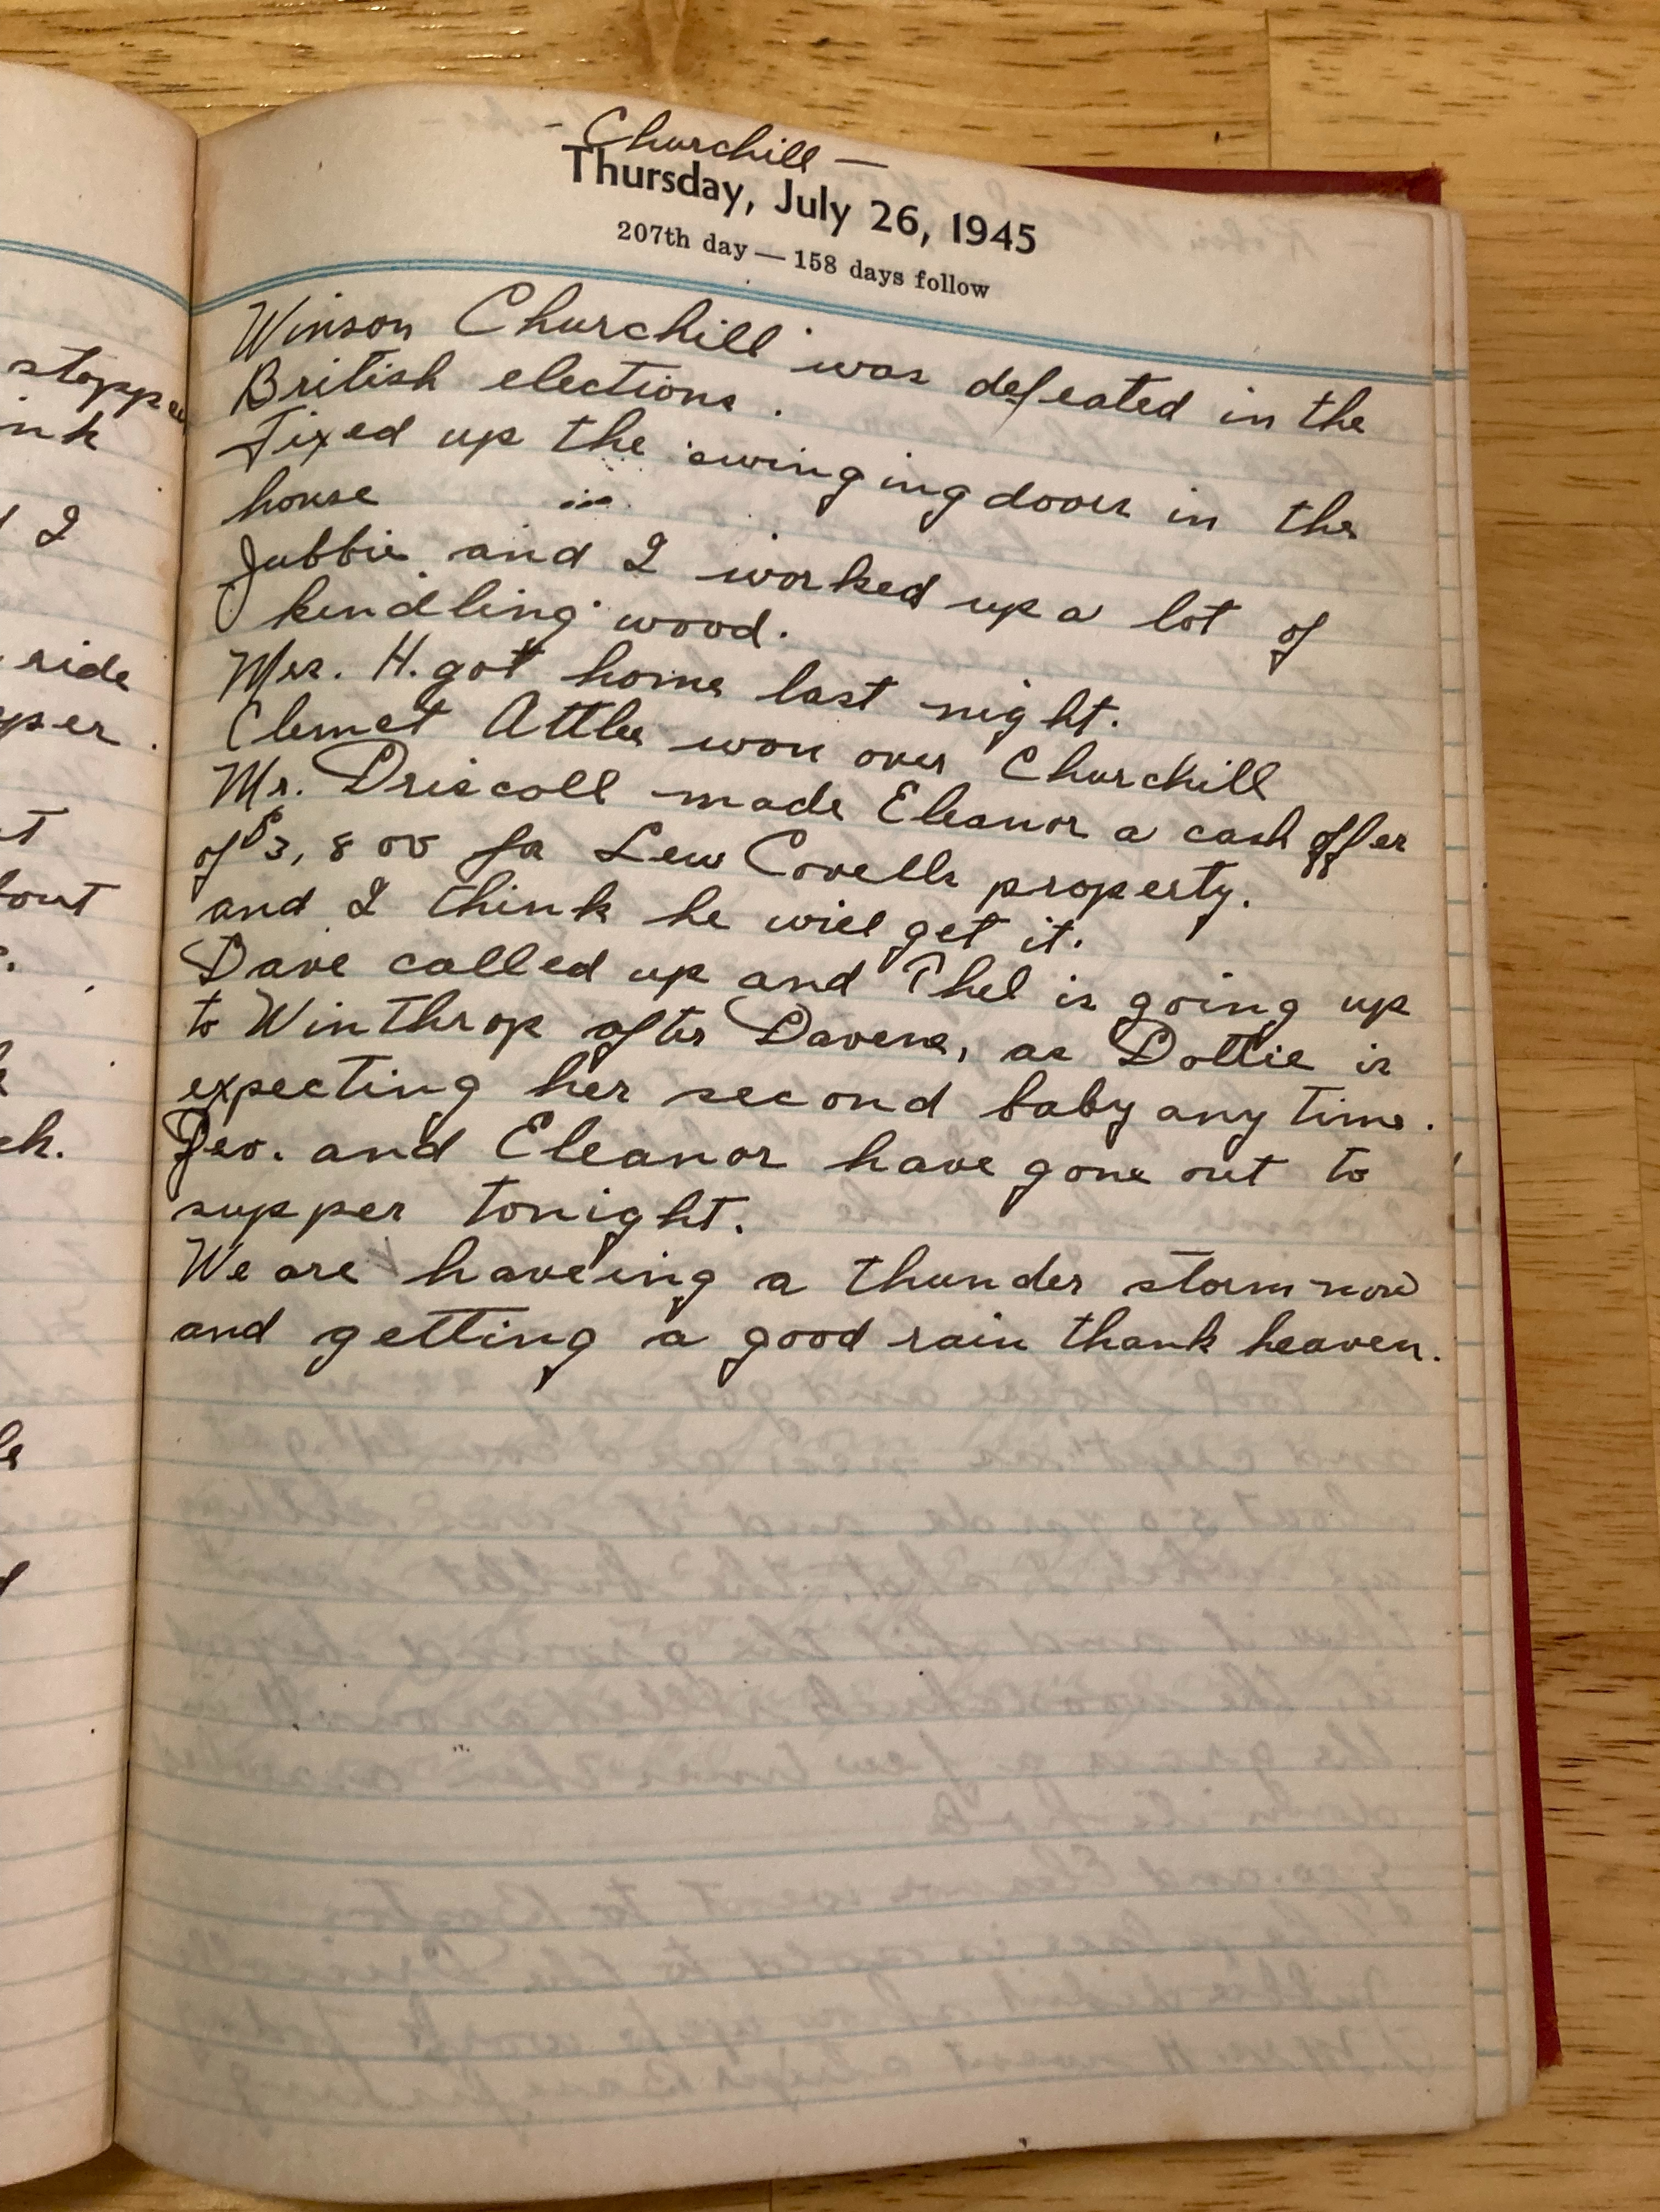 stoppe
ink
I
ride
per.
out
ch.
- Churchill -
Thursday, July 26, 1945
207th day — 158 days follow
Winson Churchill was defeated in the
British elections.
Fixed up the swinging doors in the
house
Jubbie and I worked up a lot of
kindling wood.
Mrs. H. got home last night.
Clemet Attlee won over Churchill
Mr. Driscoll made Eleanor a cash offer
of $3,800 for Lew Covells property.
and I think he will get it.
Dave called up and Thel is going up
to Winthrop after Davene, as Dottie is
expecting her second baby any time.
Geo. and Eleanor have gone out to
supper tonight.
We are haveing a thunder storm now
and getting a good rain thank heaven.